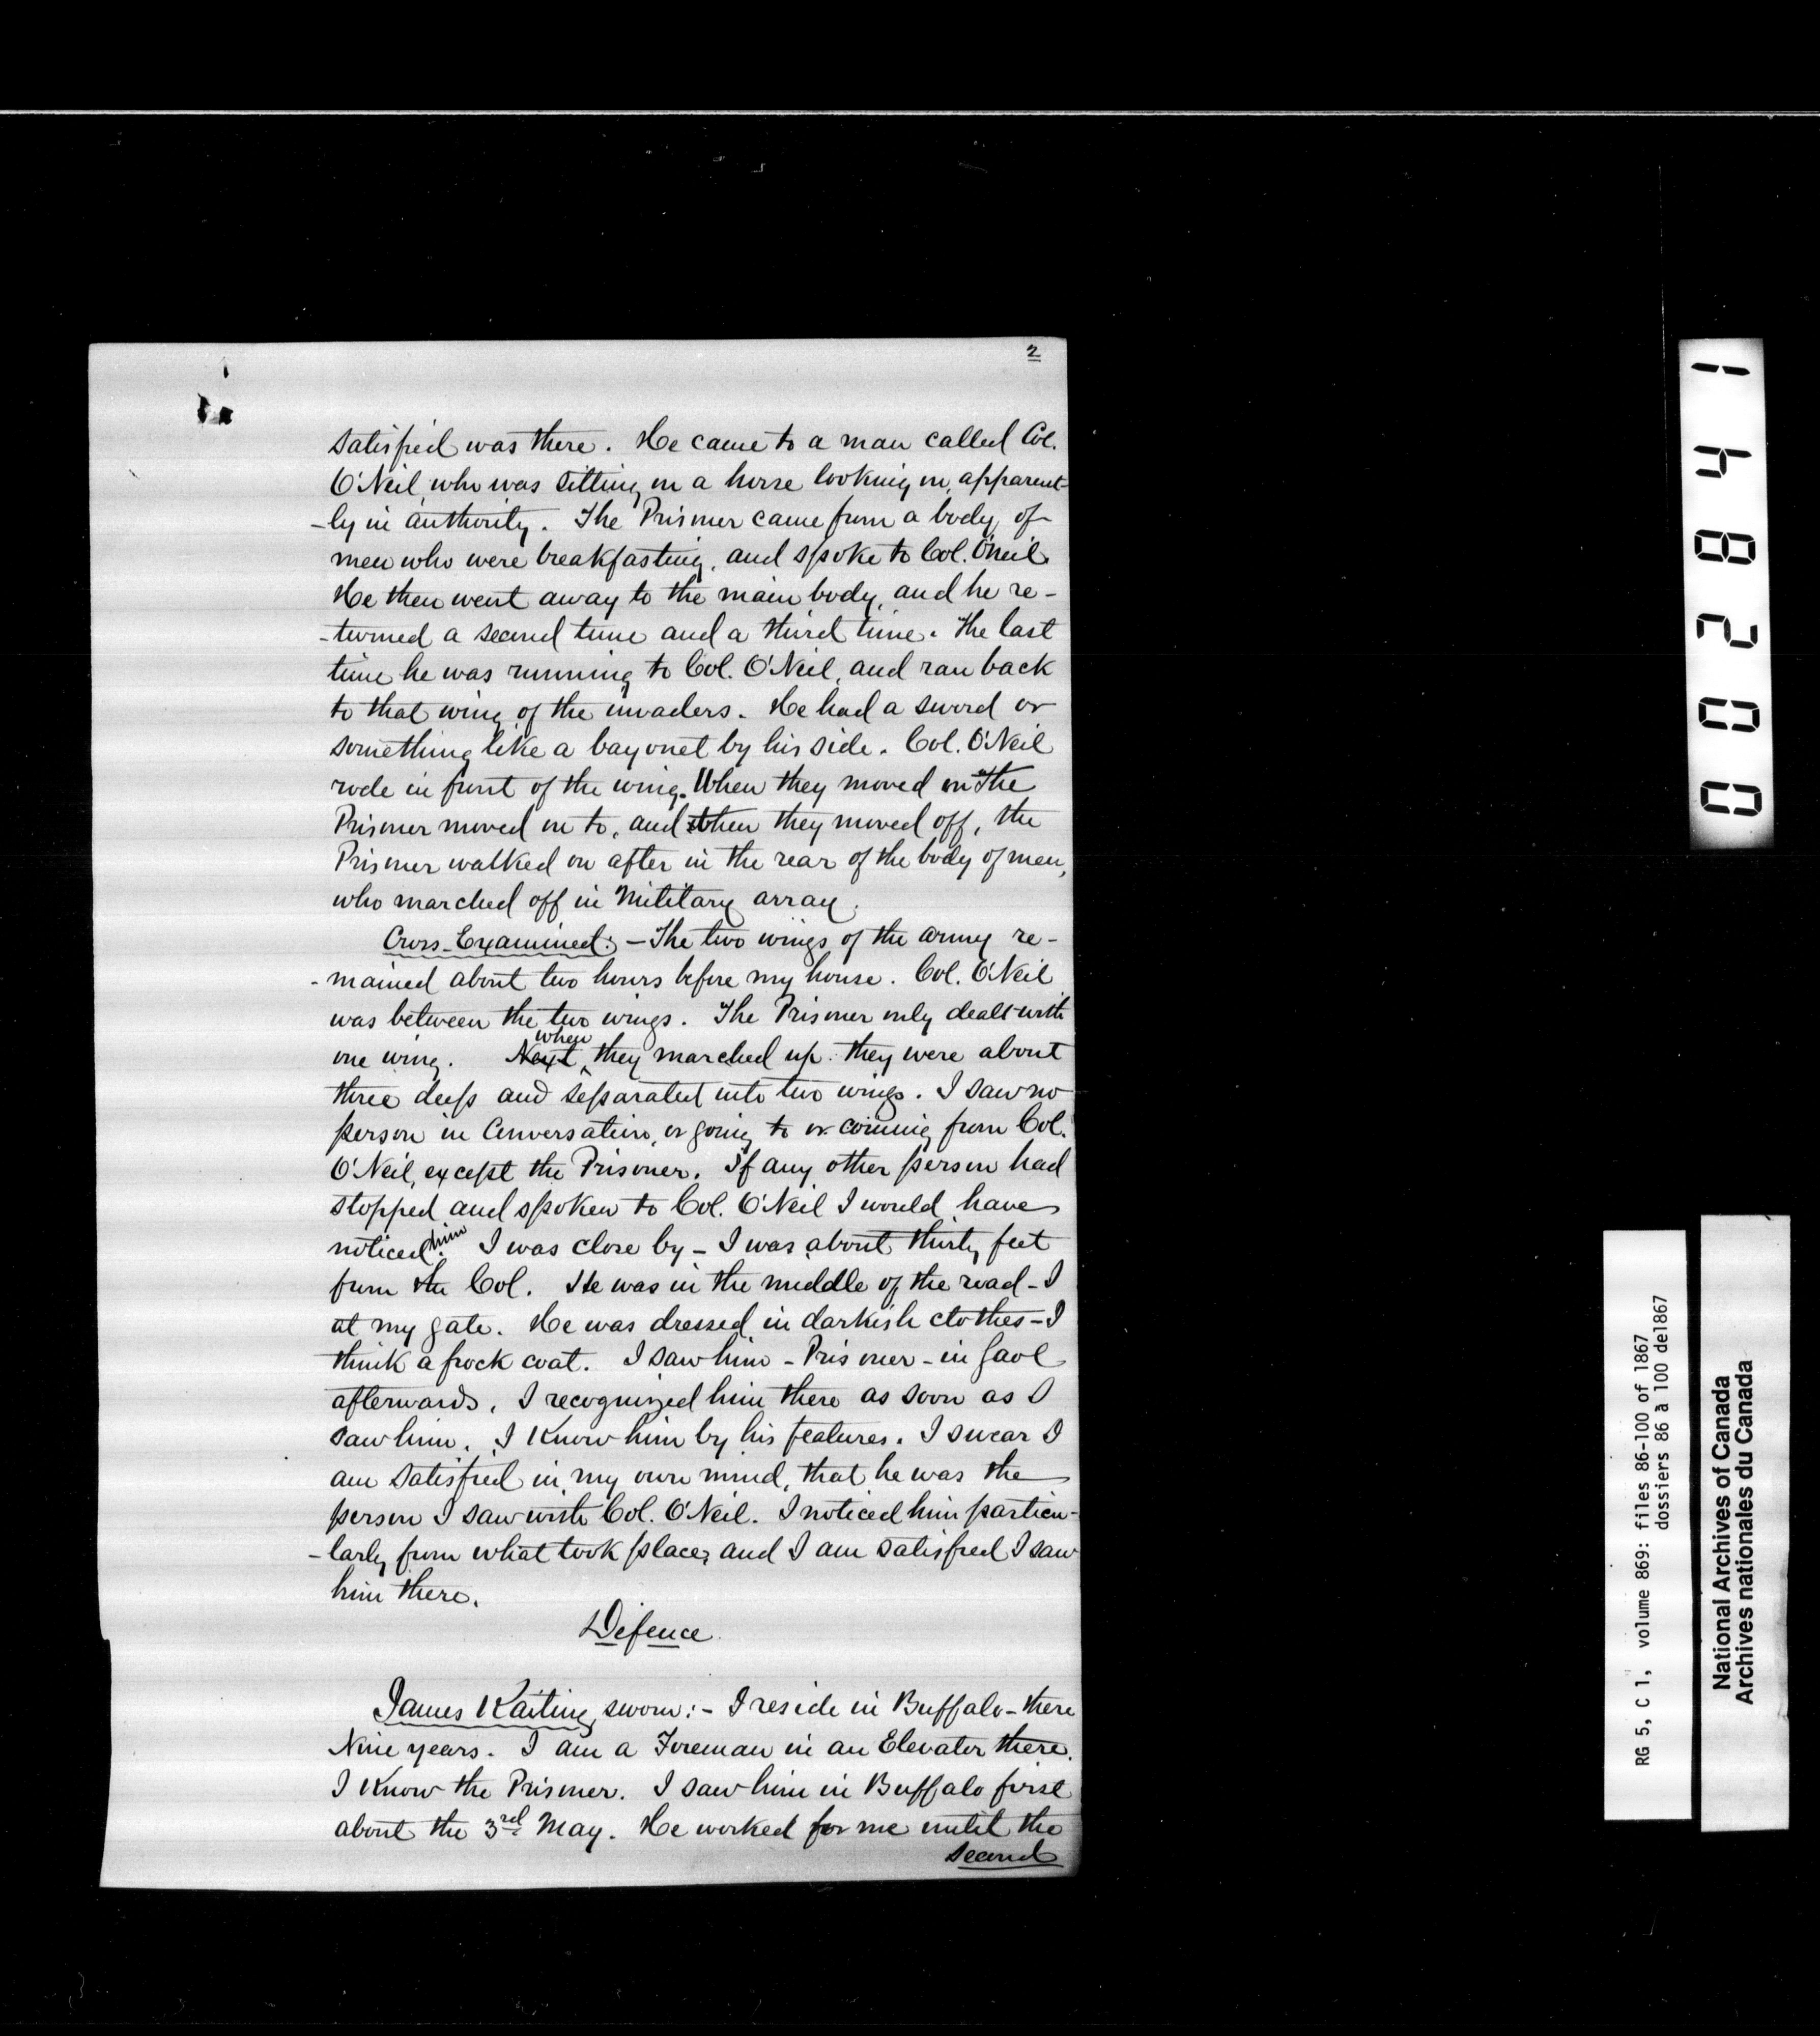 2
satisfied was there. He came to a man called Col.
O'Neil, who was sitting on a horse looking on, apparent-
-ly in authority. The Prisoner came from a body of
men who were breakfasting, and spoke to Col. O'Neil.
He then went away to the main body, and he re-
-turned a second time and a third time. The last
time he was running to Col. O'Neil, and ran back
to that wing of the invaders. He had a sword or
something like a bayonet by his side. Col. O'Neil
rode in front of the wing. When they moved on the
Prisoner moved on to, and when they moved off, the
Prisoner walked on after in the rear of the body of men,
who marched off in Military array.
Cross-Examined:- The two wings of the army re-
-mained about two hours before my house. Col. O'Neil
was between the two wings. The Prisoner only dealt with
one wing. Next when they marched up they were about
three deep and separated into two wings. I saw no
person in Conversation, or going to or coming from Col.
O'Neil, except the Prisoner. If any other person had
stopped and spoken to Col. O'Neil I would have
noticed him. I was close by - I was about thirty feet
from the Col. He was in the middle of the road - I
at my gate. He was dressed in darkish clothes - I
think a frock coat. I saw him - Prisoner - in gaol
afterwards. I recognized him there as soon as I
saw him. I know him by his features. I swear I
am satisfied in my own mind, that he was the
person I saw with Col. O'Neil. I noticed him particu-
-larly from what took place, and I am satisfied I saw
him there.
Defence.
James Kaiting, sworn:- I reside in Buffalo - there
Nine years. I am a Foreman in an Elevator there.
I know the Prisoner. I saw him in Buffalo first
about the 3rd May. He worked for me until the
second
0 0 2 8 4 1
RG 5, C 1, volume 869: files 86-100 of 1867
dossiers 86 à 100 de1867
National Archives of Canada
Archives nationales du Canada